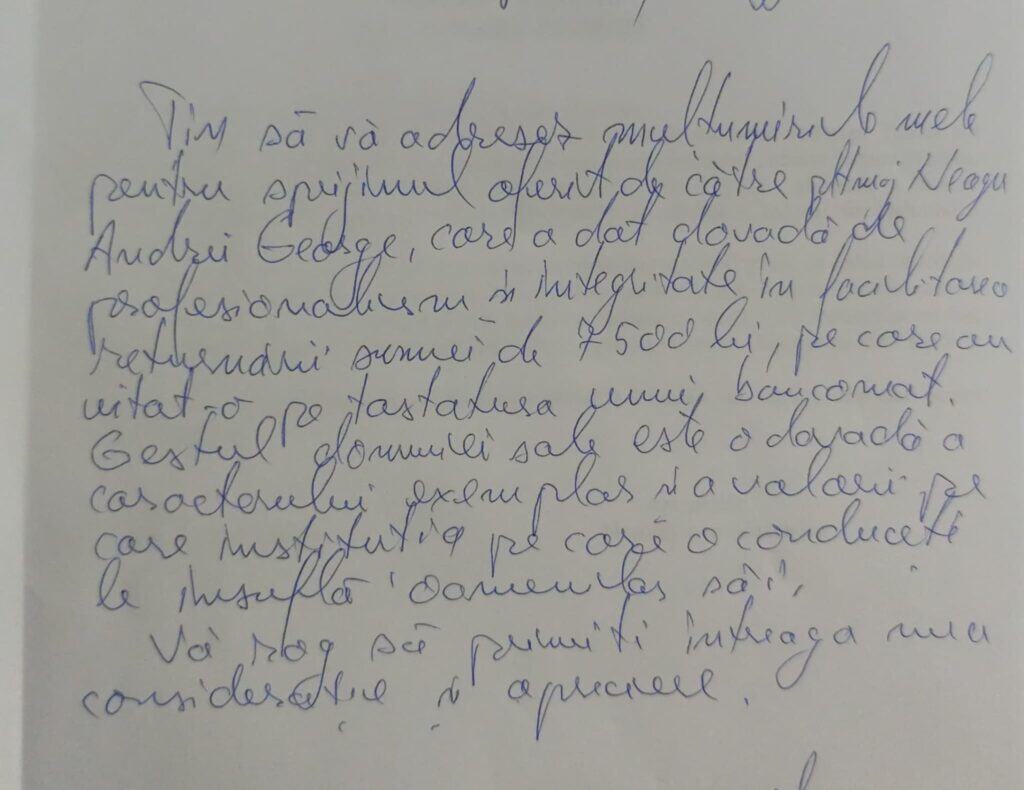 Țin să vă adresez mulțumirile mele
pentru sprijinul oferit de către plt.maj Neagu
Andrei George, care a dat dovadă de
profesionalism și integritate în facilitarea
returnării sumei de 7500 lei, pe care am
uitat-o pe tastatura unui bancomat.
Gestul domniei sale este o dovadă a
caracterului exemplar și a valorii pe
care instituția pe care o conduceți
le insuflă oamenilor săi.
Vă rog să primiți întreaga mea
considerație și apreciere.